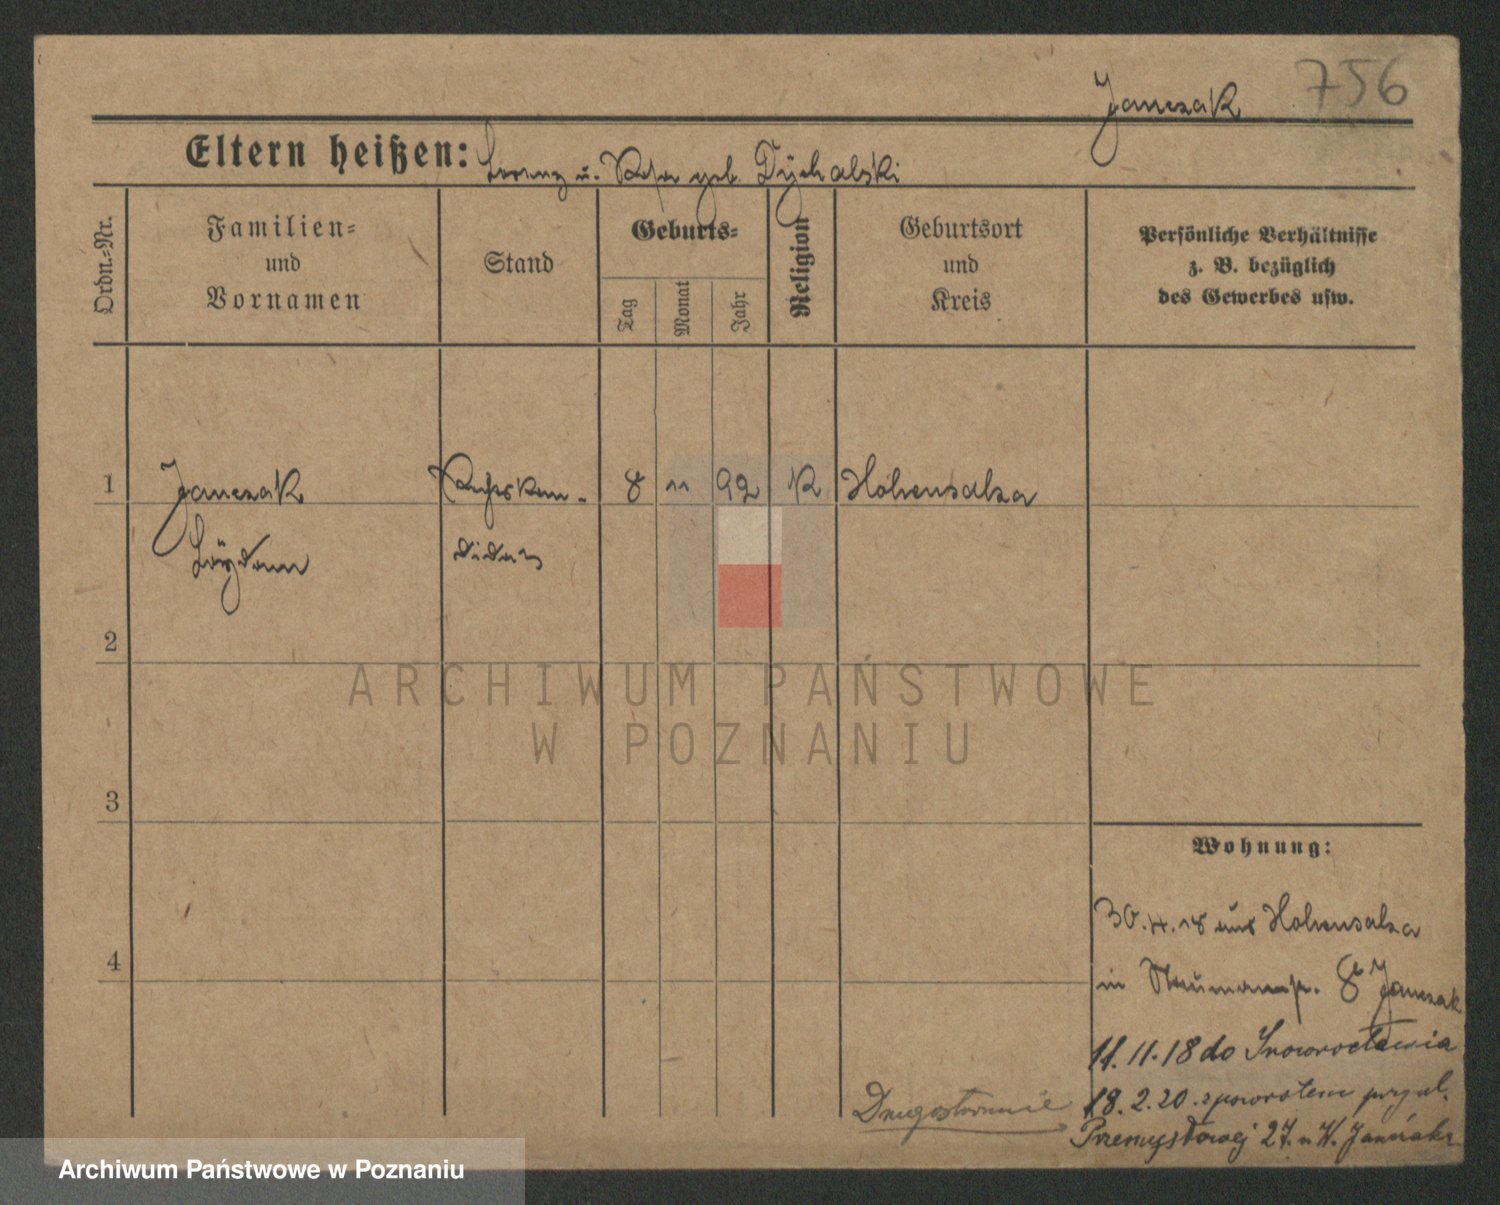 756
Janczak
Eltern heißen: Lorenz u. geb.
Ordn.-Nr.
Familien-
und
Vornamen
Stand
Geburts-
Tag
Monat
Jahr
Religion
Geburtsort
und
Kreis
Persönliche Verhältnisse
z. B. bezüglich
des Gewerbes usw.
1
Janczak 8 11 92 K Hohensalza
didat
2
ARCHIWUM PAŃSTWOWE
W POZNANIU
3
Wohnung:
30.4.18 aus Hohensalza
4
in 8 Janczak
11.11.18 do Inowrocławia
18.2.20. zpowrotem przy ul.
Przemysłowej 27. u W. Janczaka
Archiwum Państwowe w Poznaniu